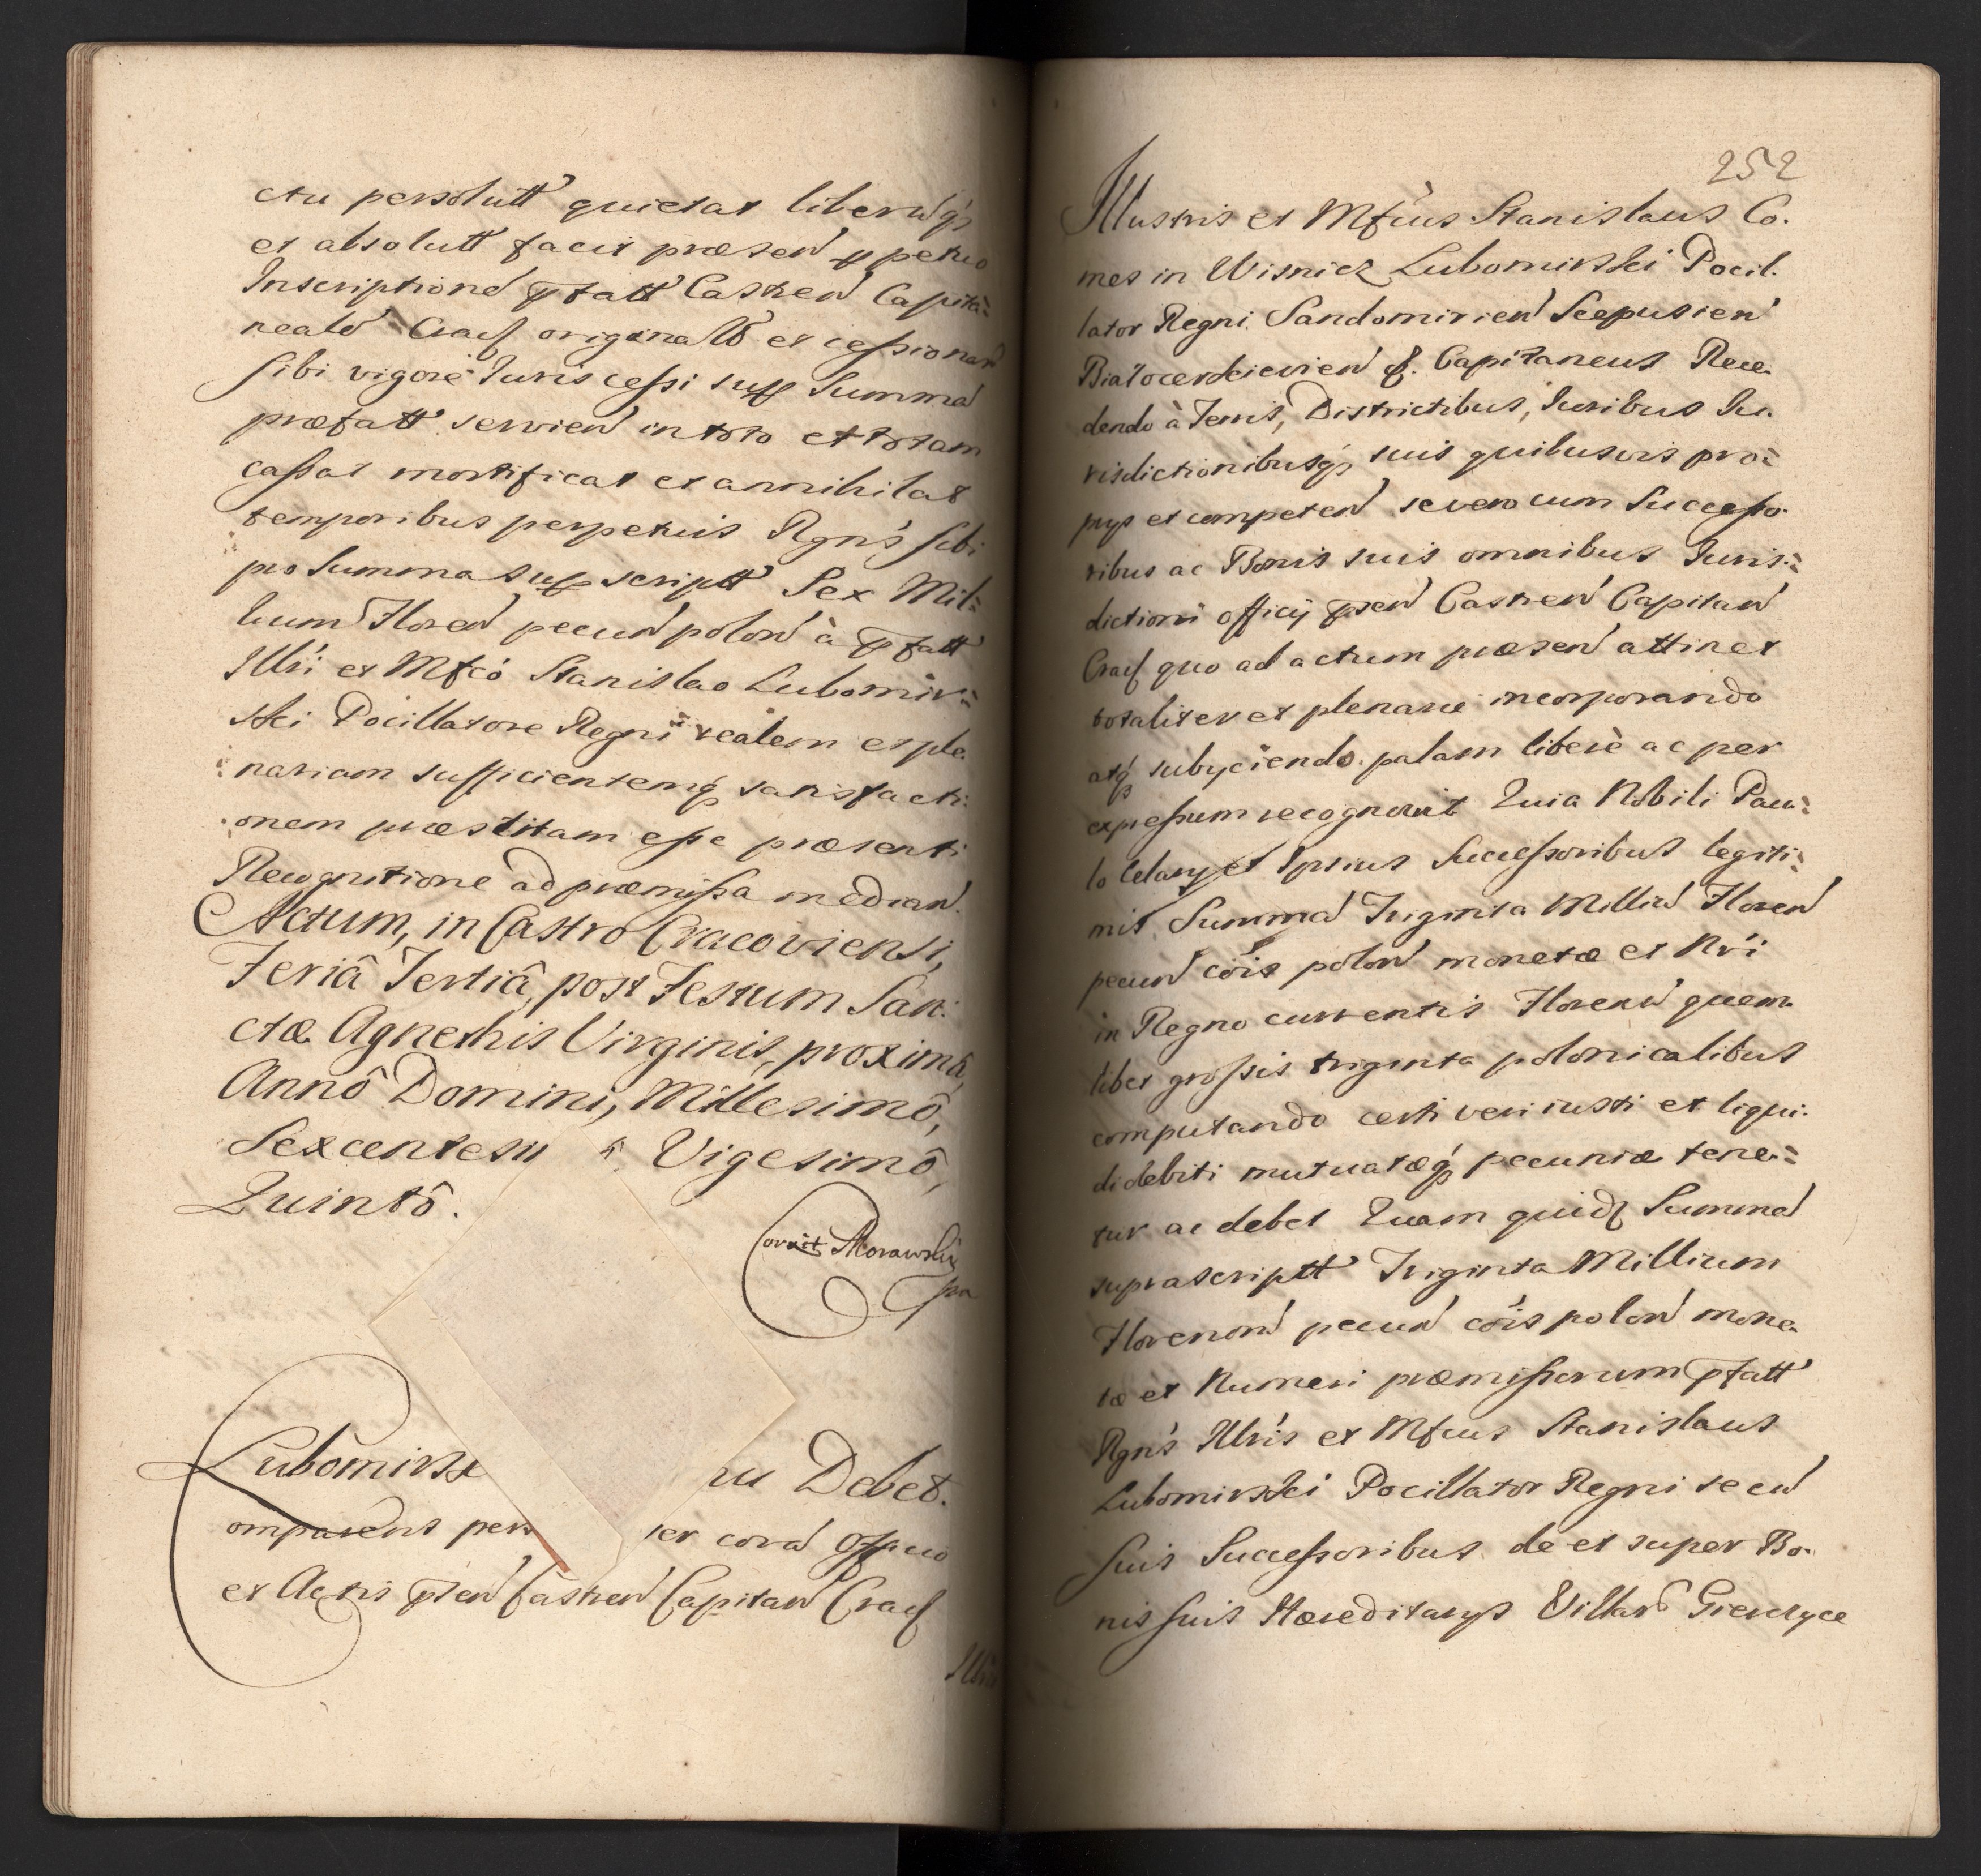 ctu persolutt quietat liberũq3
et absolutt facit præsen ꝑpetuo
Inscriptione ꝑfatt Castren Capita=
neals Cracꝭ originals et cessionar
sibi vigore Juris cessi supꝑ Summa
præfatt servien in toto et totam
cassat mortificat et annihilat
temporibus perpetuis Rgns sibi
pro Summa supꝑ scriptt Sex Mil=
lium Floren pecun polon à ꝑfatt
Illri et Mfco Stanislao Lubomir=
ski Pocillatore Regni realem et ple
nariam sufficientemq3 satisfacti
onem præstitam esse præsenti
Recognitione ad præmissa median.
Actum, in Castro Cracoviensi,
Feriâ Tertiâ, post Festum San:
ctæ Agnethis Virginis, proximâ,
Annô Domini, Millesimô,
Sexcentesi Vigesimô,
Quintô.
Corxit Morawski
mpa
Lubomirsk Debet.
omparens pers ter cora Officio
et Actis ꝑsen Castren Capitan Cracꝭ
Illris
252
Illustris et Mfcus Stanislaus Co.
mes in Wisnicz Lubomirski Pocil.
lator Regni Sandomirien Scepusien
Białocerkievien &. Capitaneus Rece.
dendo à Terris, Districtibus, Juribus Ju.
risdictionibusq3 suis quibusvis pro=
prys et competen se vero cum Successo.
ribus ac Bonis suis omnibus Juris=
dictioni officij ꝑsen Castren Capitan
Cracꝭ quo ad actum præsen attinet
totaliter et plenarie incorporando
atq3 subyciendo palam liberè ac per
expressum recognovit Quia Nobili Pau=
lo Celary et Ipsius Successoribus legiti=
mis Summa Triginta Milliu Floren
pecun cois polon monetæ et Nri
in Regno currentis Floren quem.
libet grossis triginta polonicalibus
computando certi veri iusti et liqui.
di debiti mutuatæq3 pecuniæ tene=
tur ac debet Quam quidꝫ Summa
suprascriptt Triginta Millium
Florenoru pecun cois polon mone.
tæ et Numeri præmissorum ꝑfatt
Rgns Illris et Mfcus Stanislaus
Lubomirski Pocillator Regni se cu
suis Successoribus de et super Bo.
nis suis Hæreditarys Villar Gierczyce